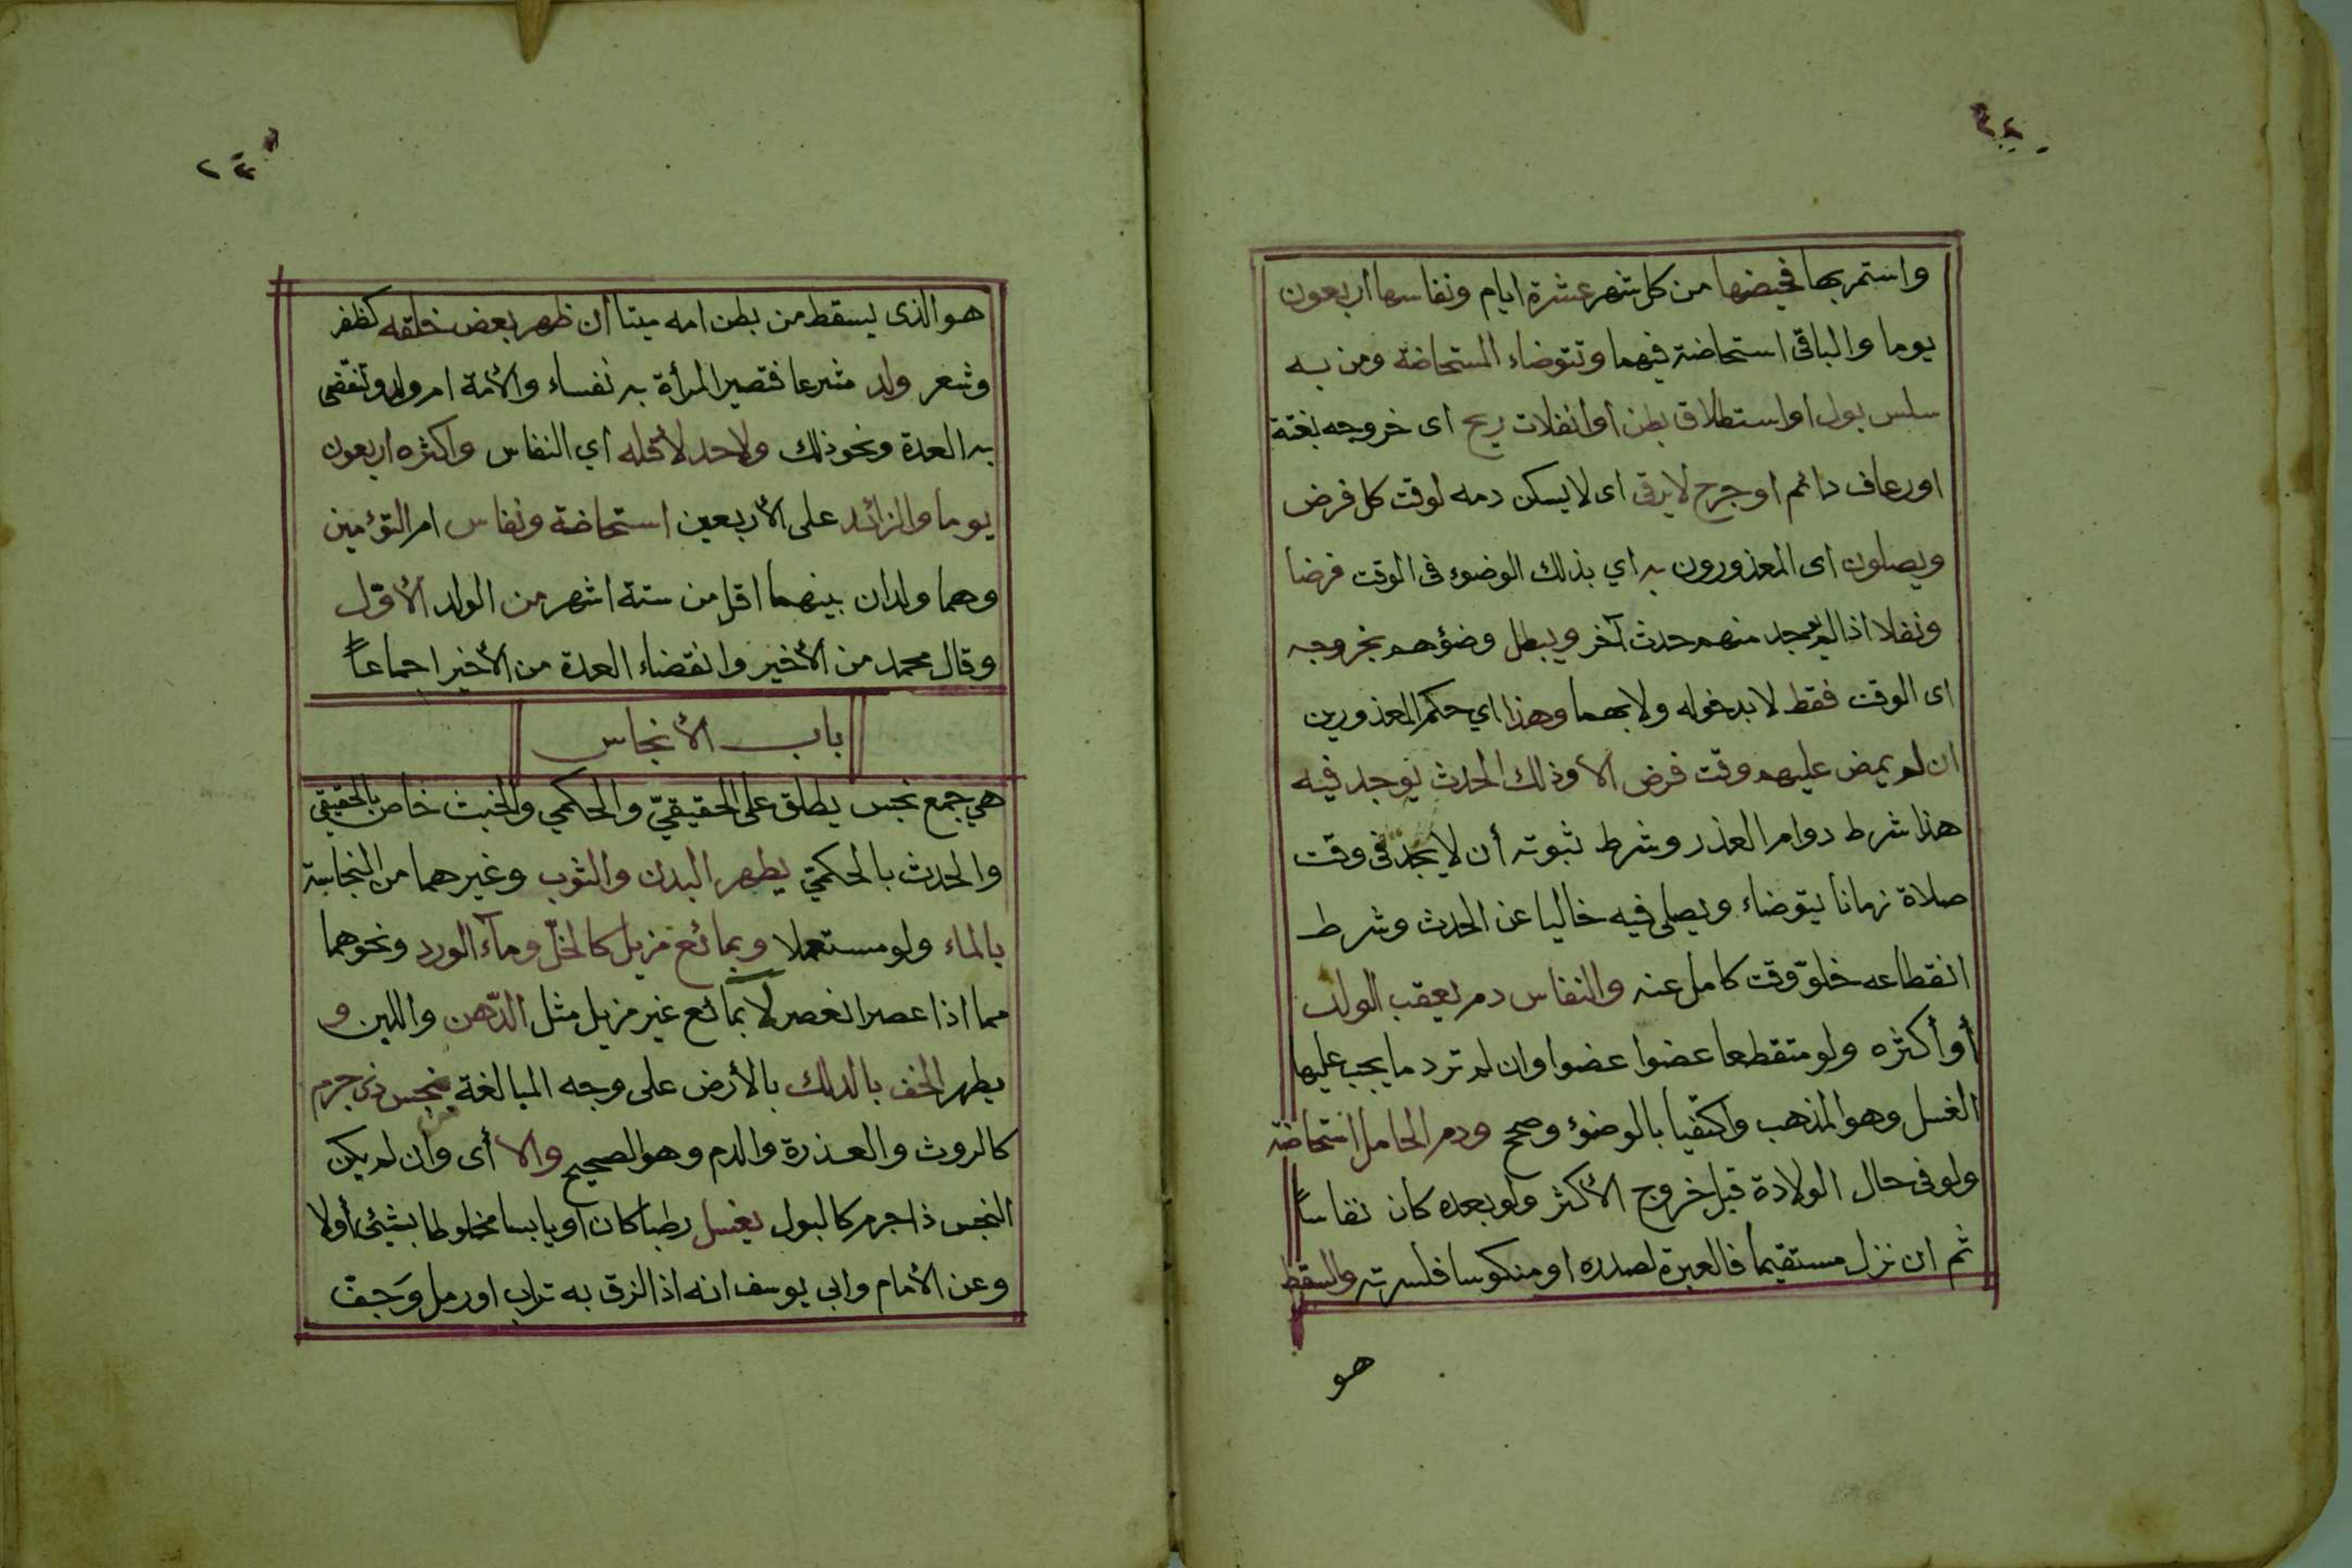 واستمر بها فحيضها من كل شهر عشرة ايام ونفاسها أربعون
يوما والباقى استحاضة فيهما وتتوضاء المستحاضة ومن به
سلس بول او استطلاق بطن أو انفلات ريح اى خروجه بغتة
او رعاف دائم او جرح لا يرقى اى لا يسكن دمه لوقت كل فرض
ويصلون اى المعذورون به اي بذلك الوضوء فى الوقت فرضا
ونفلا اذا لم يوجد منهم حدث آخر ويبطل وضؤهم بخروجه
اى الوقت فقط لا بدخوله ولا بهما وهذا اي حكم المعذورين
ان لم يمض عليهم وقت فرض الا وذلك الحدث يوجد فيه
هذا شرط دوام العذر وشرط ثبوته أن لا يجد فى وقت
صلاة زمانا يتوضاء ويصلى فيه خاليا عن الحدث وشرط
انقطاعه خلوّ وقت كامل عنه والنفاس دم يعقب الولد
أو أكثره ولو متقطعا عضوا عضوا وان لم ترد ما يجب عليها
الغسل وهو المذهب واكتفيا بالوضوء وصحح ودم الحامل استحاضة
ولو فى حال الولادة قبل خروج الأكثر ولو بعده كان نفاساً
ثم ان نزل مستقيما فالعبرة لصدره او منكوسا فلسرته والسقط
هو
هو الذى يسقط من بطن امه ميتا أن ظهر بعض خلقه كظفر
وشعر ولد شرعا فتصير المرأة به نفساء والأمة ام ولد وتنقضى
به العدة ونحو ذلك ولا حد لأقله أي النفاس واكثره اربعون
يوما والزائد على الأربعين استحاضة ونفاس ام التؤمين
وهما ولدان بينهما اقل من ستة اشهر من الولد الأوّل
وقال محمد من الأخير وانقضاء العدة من الأخير اجماعاً
باب الأنجاس
هي جمع نجس يطلق على الحقيقيّ والحكمي والخبث خاص بالحقيقي
والحدث بالحكميّ يطهر البدن والثوب وغيرهما من النجاسة
بالماء ولو مستعملا وبمائع مزيل كالخلّ ومآء الورد ونحوهما
مما اذا عصر انعصر لا بمائع غير مزيل مثل الدّهن واللبن و
يطهر الخف بالدلك بالأرض على وجه المبالغة بنجس ذى جرم
كالروث والعذرة والدم وهو الصحيح والا أى وان لم يكن
النجس ذا جرم كالبول يغسل رطبا كان او يابسا مخلوطا بشئ أولا
وعن الأمام وابى يوسف انه اذا الزق به تراب او رمل وَجف